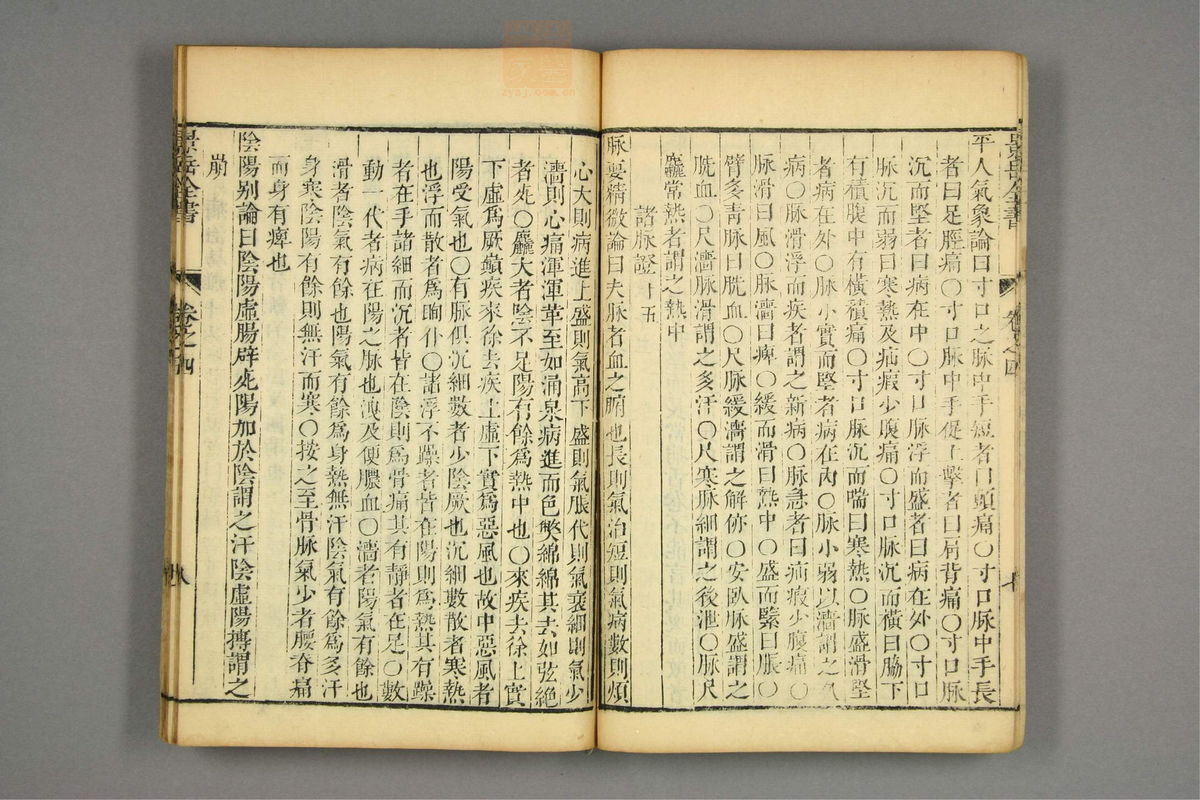 平人氣象論曰寸口之脉中手短者曰頭痛〇寸口脉中手長
者曰足脛痛〇寸口脉中手促上擊者曰肩背痛〇寸口脉
沉而堅者曰病在中〇寸口脉浮而盛者曰病在外〇寸口
脉沉而弱曰寒熱及疝瘕少腹痛〇寸口脉沉而橫曰脇下
有積腹中有橫積痛〇寸口脉沉而喘曰寒熱〇脉盛滑堅
者病在外〇脉小實而堅者病在内〇脉小弱以濇謂之久
病〇脉滑浮而疾者謂之新病〇脉急者曰疝瘕少腹痛〇
脉滑曰風〇脉濇曰痺〇緩而滑曰熱中〇盛而緊曰脹〇
臂多青脉曰脫血〇尺脉緩濇謂之解㑊〇安臥脉盛謂之
脫血〇尺濇脉滑謂之多汗〇尺寒脉細謂之後泄〇脉尺
麤常熱者謂之熱中
諸脉證十五
脉要精微論曰夫脉者血之腑也長則氣治短則氣病數則煩
心大則病進上盛則氣高下盛則氣脹代則氣衰細則氣少
濇則心痛渾渾革至如涌泉病進而色弊綿綿其去如弦絕
者死〇麤大者陰不足陽有餘爲熱中也〇來疾去徐上實
下虛爲厥巔疾來徐去疾上虛下實爲惡風也故中惡風者
陽受氣也〇有脉俱沉細數者少陰厥也沉細數散者寒熱
也浮而散者爲眴仆〇諸浮不躁者皆在陽則爲熱其有躁
者在手諸細而沉者皆在陰則爲骨痛其有靜者在足〇數
動一代者病在陽之脉也洩及便膿血〇濇者陽氣有餘也
滑者陰氣有餘也陽氣有餘爲身熱無汗陰氣有餘爲多汗
身寒陰陽有餘則無汗而寒〇按之至骨脉氣少者腰脊痛
而身有痺也
陰陽别論曰陰陽虛腸辟死陽加於陰謂之汗陰虛陽搏謂之
崩
景岳全書
卷之四
八
景岳全書
卷之四
zysj.com.cn